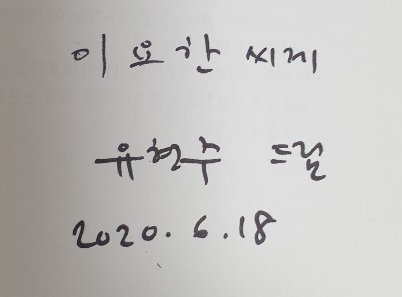 이요한 씨께
유현주 드림
2020.6.18